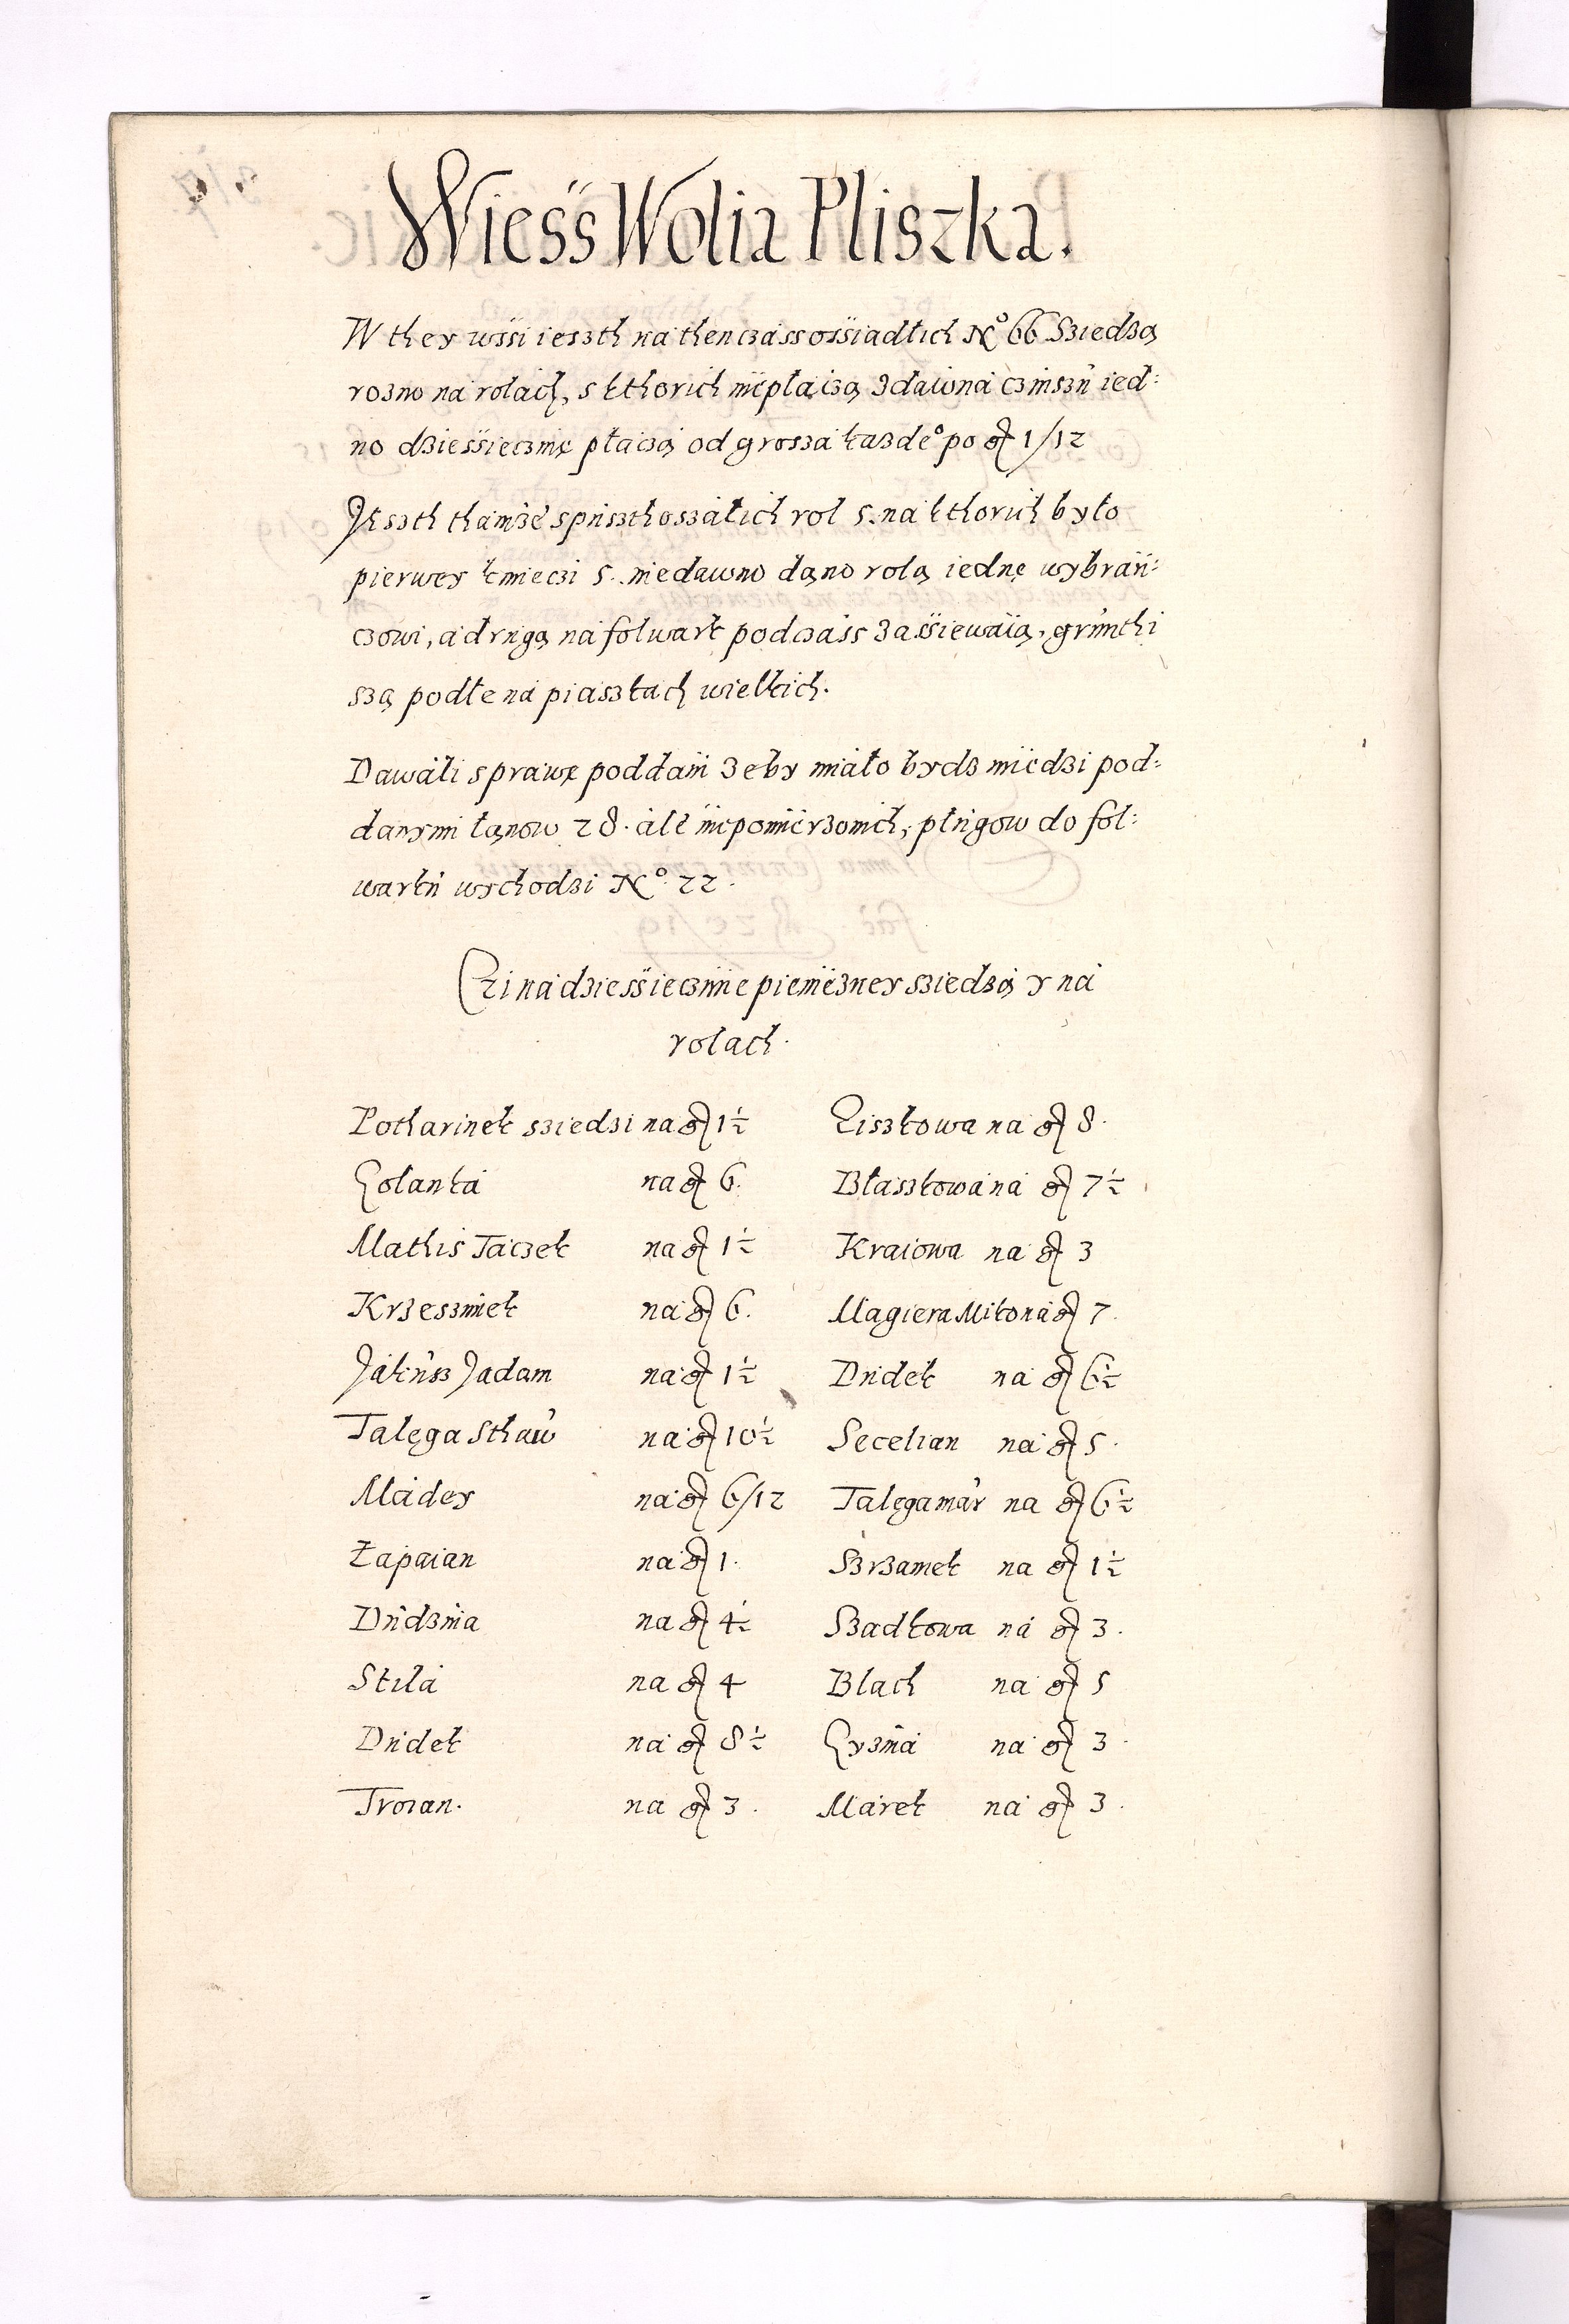 Wiess Wolia Pliszka.
W they wssi ieszth na then czass ossiadłich No 66 Sziedzą
rozno na rolach, s kthorich nieplączą zdawna czinszu ied:
no dziessieczinę płaczą od grosza kazdeo po gr 1/12
Jeszth thamze spusthoszałich rol 5. na kthorich było
pierwey kmieczi 5. niedawno dąno rolą iednę wybrań:
czowi, a drugą na folwark podczass zassiewaią, grunthi
szą podłe na piaszkach wielkich.
Dawali sprawę poddani zeby miało bydz miedzi pod:
danymi łąnow 28. ale niepomierzonich, pługow do fol:
warku wychodzi No. 22.
Czi na dziessieczinie pienieżney sziedzą y na
rolach.
Potharinek sziedzi na gr 1½ Ziszkowa na gr 8.
Golanka na gr 6. Błaszkowa na gr 7½
Mathis Taczek na gr 1½ Kraiowa na gr 3
Krzesziniek na gr 6. Magiera Miko na gr 7.
Jakusz Jadam na gr 1½ Dudek na gr 6½
Talęga Sthaw na gr 10½ Secelian na gr 5.
Madey na gr 6/12 Talęga mar na gr 6½
Łapaian na gr 1. Szrzamek na gr 1½
Dudzina na gr 4½ Szadkowa na gr 3.
Skila na gr 4 Blach na gr 5
Dudek na gr 8½ Gyzma na gr 3.
Troian. na gr 3. Marek na gr 3.